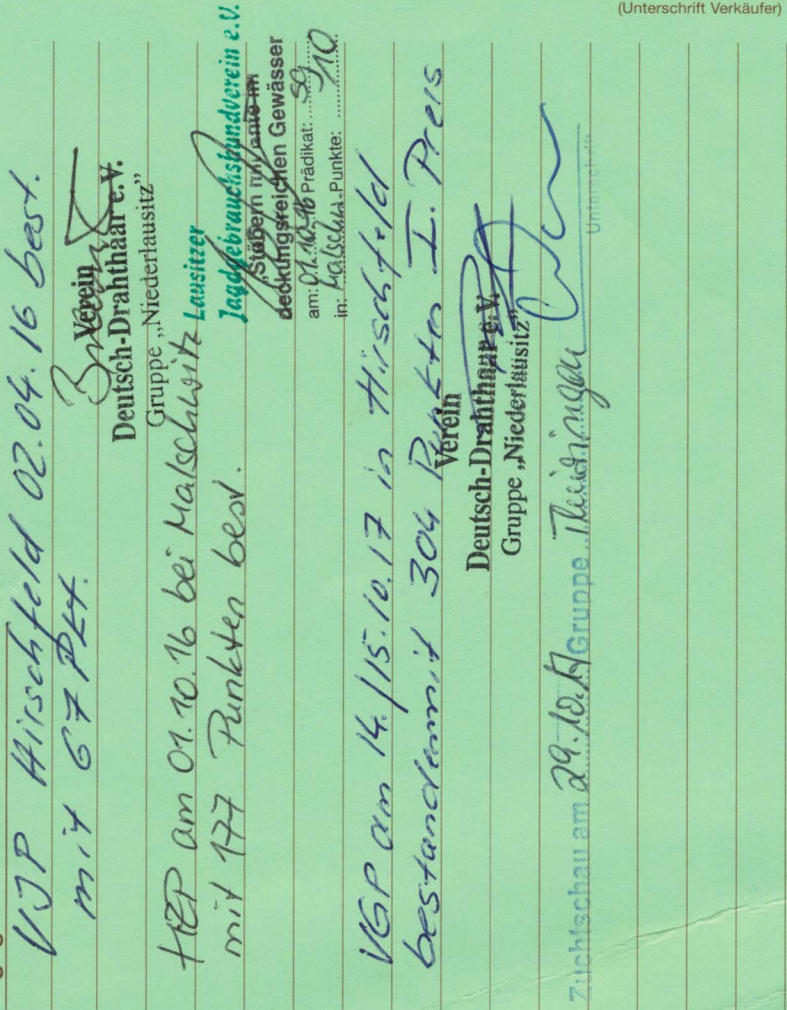 (Unterschrift Verkäufer)
VJP Hirschfeld 02.04.16 best.
mit 67 Pkt.
Verein
Deutsch-Drahthaar e.V.
Gruppe „Niederlausitz”
HZP am 01.10.16 bei Malschwitz
mit 177 Punkten best.
Lausitzer
Jagdgebrauchshundverein e.V.
"Stöbern mit Ente im
deckungsreichen Gewässer
am: 01.10.16 Prädikat: sg
in: Malschw. Punkte: 10
VGP am 14./15.10.17 in Hirschfeld
bestanden mit 304 Punkten I. Preis
Verein
Deutsch-Drahthaar e.V.
Gruppe „Niederlausitz”
Zuchtschau am 29.10.17 Gruppe Thüringen
Unterschrift